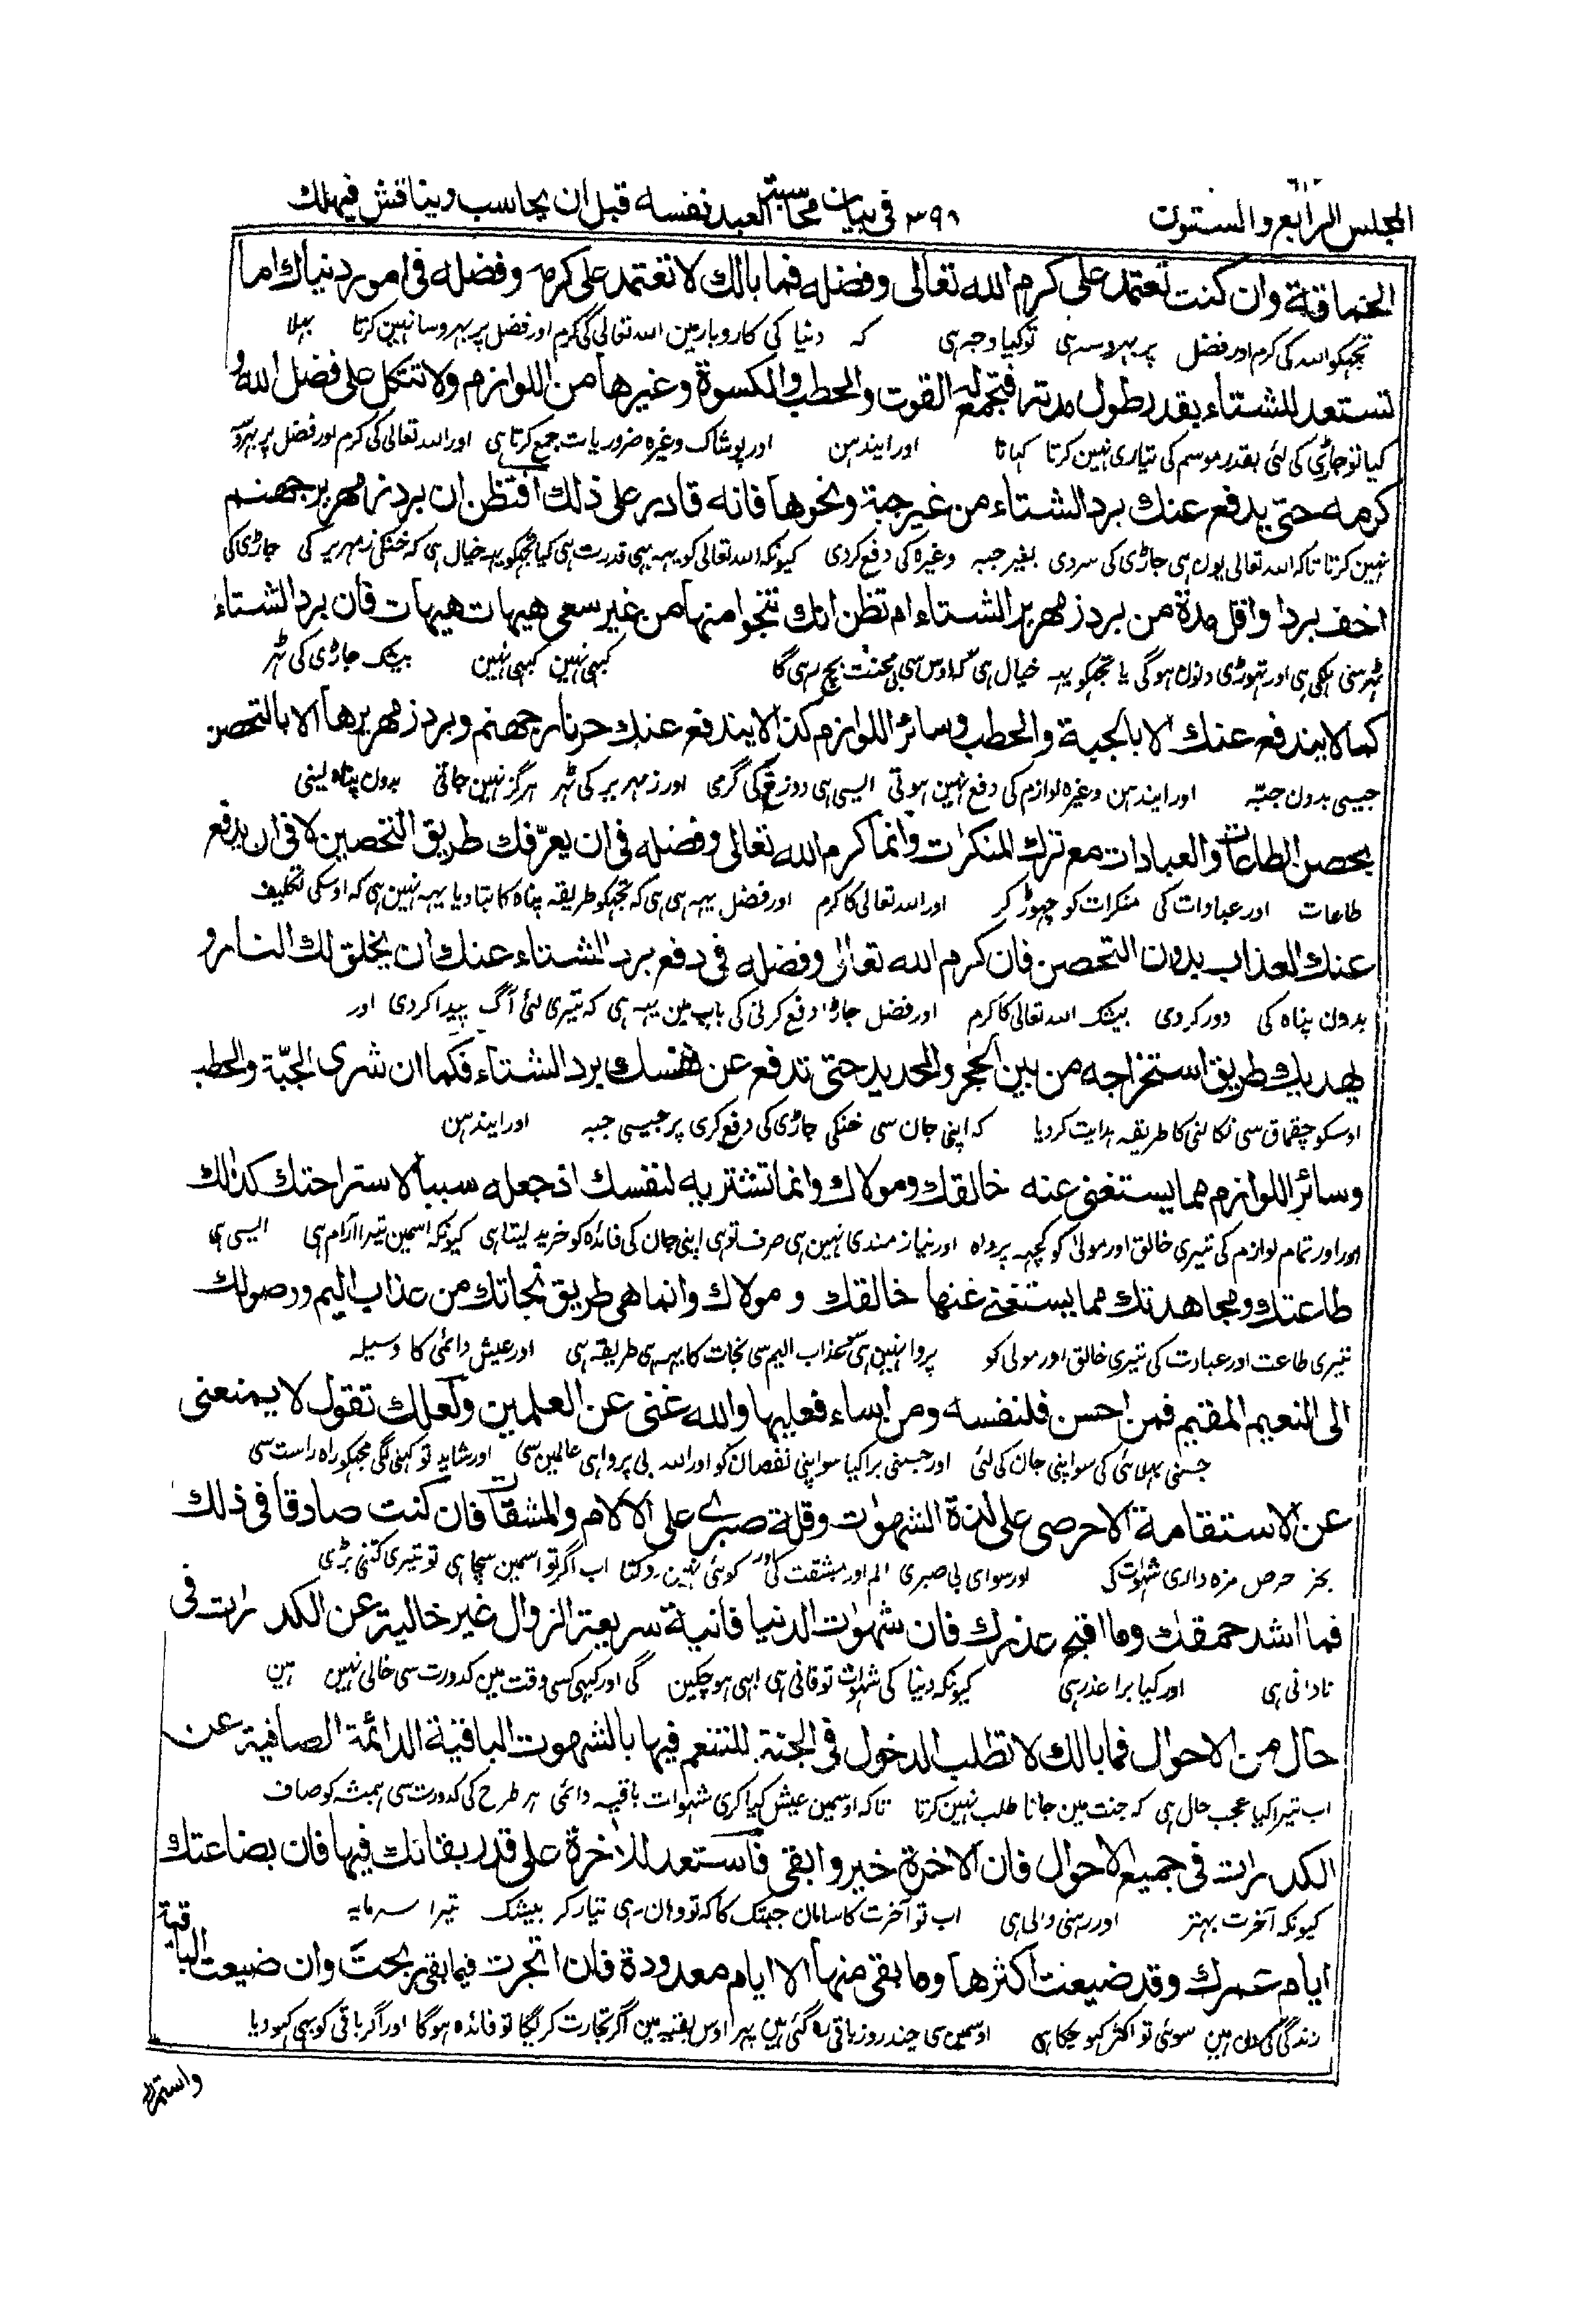 المجلس الرابع والستون ٣٩٦ في بيان محاسبة العبد نفسه قبل ان يحاسب ويناقش فيهلك
الحماقة وان كنت تعتمد على كرم الله تعالى وفضله فما بالك لا تعتمد على كرمه وفضله في امور دنياك اما
تجهکو الله کی کرم اور فضل پر بهروسه ہی توکیا وجہ ہی کہ دنیا کی کاروبار مین الله تعالی کی کرم اور فضل پر بهروسا نہین کرتا بہلا
تستعد للشتاء بقدر طول مدته فتجمع له القوت والحطب والكسوة وغيرها من اللوازم ولا تتكل على فضل الله و
کیا تو جاڑی کی لئی بقدر موسم کی تیاری نہین کرتا کہانا اور ایندہن اور پوشاک وغیرہ ضروریات جمع کرتا ہی اور الله تعالی کی کرم اور فضل پر بہروسہ
كرمه حتى يدفع عنك برد الشتاء من غير جبة ونحوها فانه قادر على ذلك افتظن ان برد زمهرير جهنم
نہین کرتا تاکہ الله تعالی یون ہی جاڑی کی سردی بغیر جبہ وغیرہ کی دفع کردی کیونکہ الله تعالی کو یہہ بہی قدرت ہی کیا تجہکو یہہ خیال ہی کہ خنکی زمہریر کی جاڑی کی
اخف بردا واقل مدة من برد زمهرير الشتاء ام تظن انك تنجوا منها من غير سعى هيهات هيهات فان برد الشتاء
ٹہر سی ہلکی ہی اور تہوڑی دنون ہوگی یا تجہکو یہہ خیال ہی کہ اوس سی بی محنت بچ رہی گا کبہی نہین کبہی نہین بیشک جاڑی کی ٹہر
كما لا يندفع عنك الا بالجبة والحطب وسائر اللوازم كذا لا يندفع عنك حر نار جهنم وبرد زمهريرها الا بالتحصن
جیسی بدون جبّہ اور ایندہن وغیرہ لوازم کی دفع نہین ہوتی ایسی ہی دوزخ کی گرمی اور زمہریر کی ٹہر ہرگز نہین جاتی بدون پناہ لینی
بحصن الطاعات والعبادات مع ترك المنكرات وانما كرم الله تعالى وفضله في ان يعرّفك طريق التحصين لا في ان يدفع
طاعات اور عبادات کی منکرات کو چہوڑ کر اور الله تعالی کا کرم اور فضل یہہ ہی ہی کہ تجہکو طریقہ پناہ کا بتا دیا یہہ نہین ہی کہ اوسکی تکلیف
عنك العذاب بدون التحصن فان كرم الله تعالى وفضله في دفع برد الشتاء عنك ان يخلق لك النار و
بدون پناہ کی دور کردی بیشک الله تعالی کا کرم اور فضل جاڑا دفع کرنی کی باب مین یہہ ہی کہ تیری لئی آگ پیدا کردی اور
يهديك طريق استخراجه من بين الحجر والحديد حتى تدفع عن نفسك برد الشتاء فكما ان شرى الجبّة والحطب
اوسکو چقماق سی نکالنی کا طریقہ ہدایت کردیا کہ اپنی جان سی خنکی جاڑی کی دفع کری پر جیسی جبہ اور ایندہن
وسائر اللوازم مما يستغنى عنه خالقك ومولاك وانما تشتريه لنفسك اذ جعله سببا لاستراحتك كذلك
اور اور تمام لوازم کی تیری خالق اور مولیٰ کو کچہہ پرواہ اور نیاز مندی نہین ہی صرف تو ہی اپنی جان کی فائدہ کو خرید لیتا ہی کیونکہ اسمین تیرا آرام ہی ایسی ہی
طاعتك ومجاهدتك مما يستغنى عنها خالقك ومولاك وانما هي طريق نجاتك من عذاب اليم ووصولك
تیری طاعت اور عبادت کی تیری خالق اور مولی کو پروا نہین ہی عذاب الیم سی نجات کا یہہ ہی طریقہ ہی اور عیش دائمی کا وسیلہ
الى النعيم المقيم فمن احسن فلنفسه ومن اساء فعليها والله غنى عن العلمين ولعلك تقول لا يمنعنى
جسنی بہلائی کی سو اپنی جان کی لئی اور جسنی برا کیا سو اپنی نقصان کو اور الله بی پروا ہی عالمین سی اور شاید تو کہنی لگی مجہکو راہ راست سی
عن الاستقامة الا حرصى على لذة الشهوات وقلة صبرى على الآلام والمشقات فان كنت صادقا في ذلك
بجز حرص مزہ داری شہوات کی اور سوای بی صبری الم اور مشقت کی اور کوئی نہین روکتا اب اگر تو اسمین سچا ہی تو تیری کتنی بڑی
فما اشد حمقك وما اقبح عذرك فان شهوات الدنيا فانية سريعة الزوال غير خالية عن الكدرات في
نادانی ہی اور کیا برا عذر ہی کیونکہ دنیا کی شہوات تو فانی ہی ابہی ہو چکین گی اور کبہی کسی وقت مین کدورت سی خالی نہین ہین
حال من الاحوال فما بالك لا تطلب الدخول في الجنة للتنعم فيها بالشهوت الباقية الدائمة الصافية عن
اب تیرا کیا عجب حال ہی کہ جنت مین جانا طلب نہین کرتا تاکہ اوسمین عیش کیا کری شہوات باقیہ دائمی ہر طرح کی کدورت سی ہمیشہ کو صاف
الكدرات في جميع الاحوال فان الاخرة خير وابقى فاستعد للآخرة على قدر بقائك فيها فان بضاعتك
کیونکہ آخرت بہتر اور رہنی والی ہی اب تو آخرت کا سامان جبتک کا کہ تو وہان رہی تیار کر بیشک تیرا سرمایہ
ايام عمرك وقد ضيعت اكثرها وما بقى منها الا ايام معدودة فان اتجرت فيما بقى ربحت وان ضيعت الباقية
زندگی کی دن ہین سوئی تو اکثر کہو چکا ہی اوسمین سی چند روز باقی رہ گئی ہین پہر اوس بقیہ مین اگر تجارت کر لیگا تو فائدہ ہوگا اور اگر باقی کو بہی کہو دیا